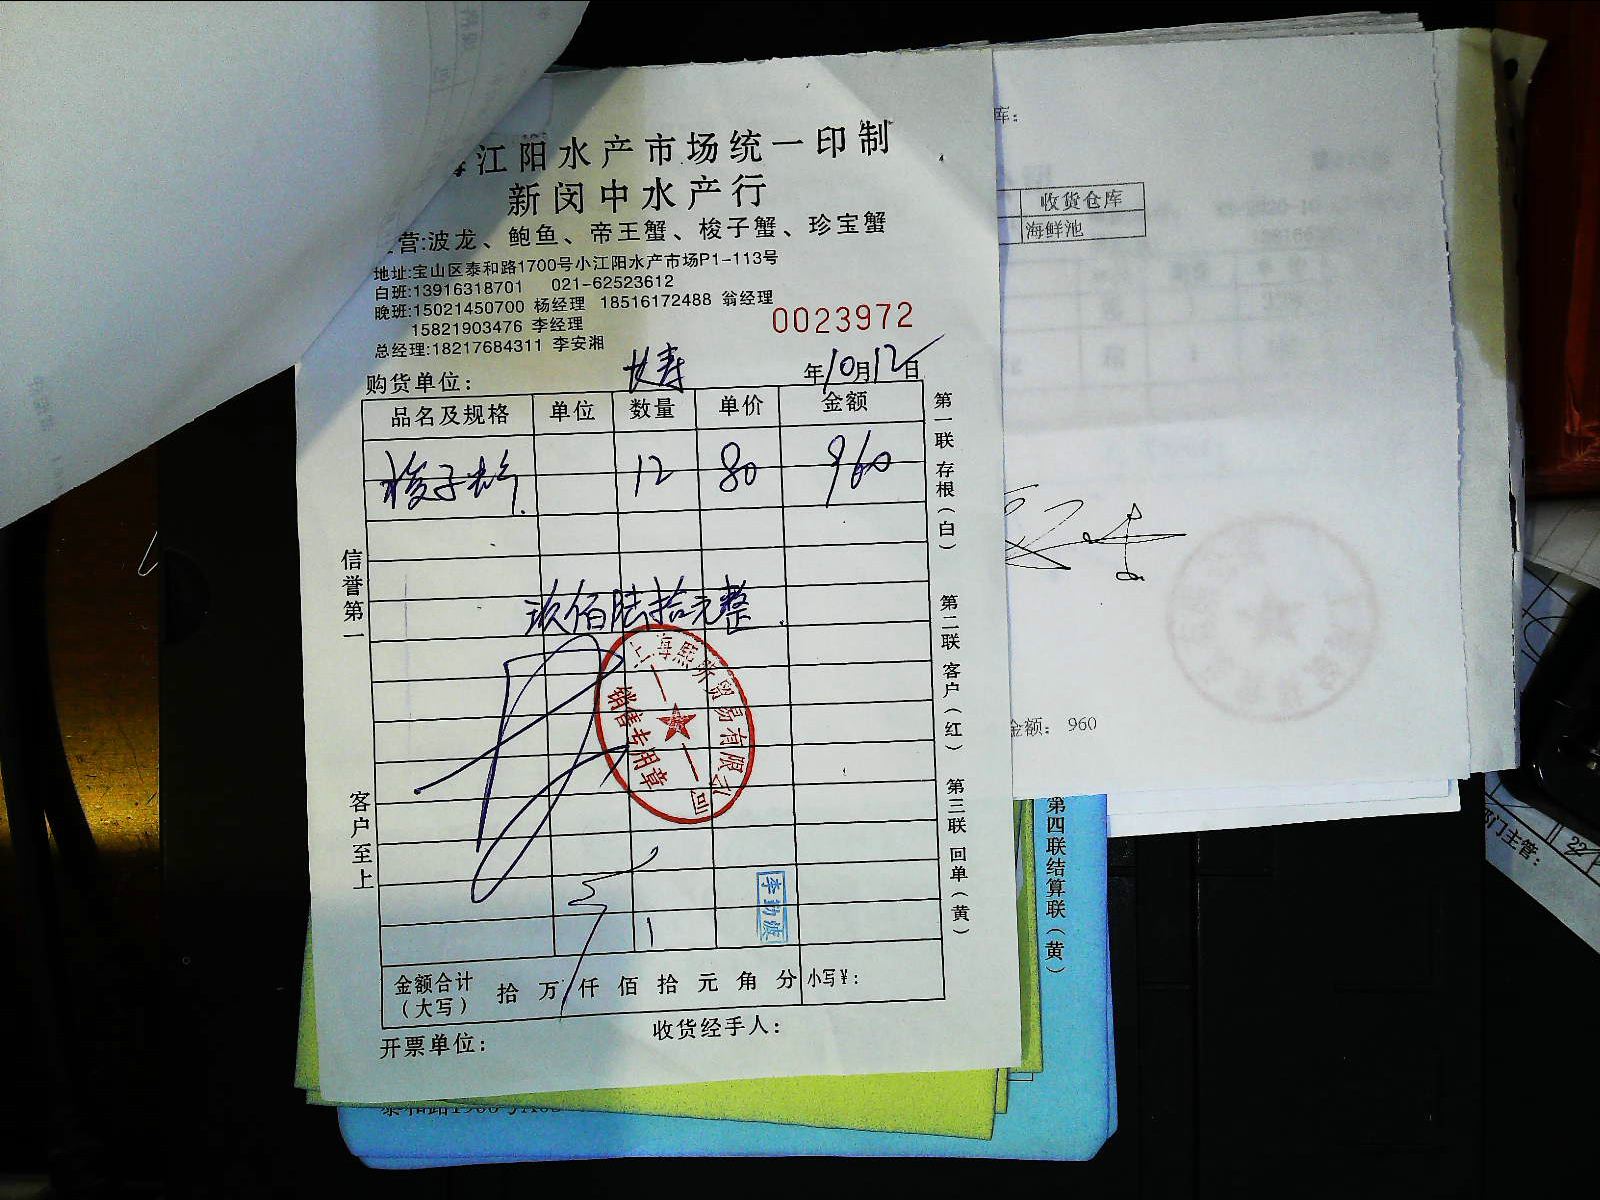 江阳水产市场统一印制
新闵中水产行
营:波龙、鲍鱼、帝王蟹、梭子蟹、珍宝蟹
地址:宝山区泰和路1700号小江阳水产市场P1-113号
白班:13916318701 021-62523612
晚班:15021450700 杨经理 18516172488 翁经理
15821903476 李经理
总经理:18217684311 李安湘
0023972
购货单位: 长寿 年10月12日
品名及规格 单位 数量 单价 金额
梭子蟹 12 80 960
玖佰陆拾元整
上海熙 贸易有限公司
销售专用章
李勤波
金额合计(大写) 拾 万 仟 佰 拾 元 角 分 小写¥:
开票单位: 收货经手人:
信誉第一
客户至上
第一联存根(白)
第二联客户(红)
第三联回单(黄)
库:
收货仓库
海鲜池
金额: 960
第四联结算联(黄)
部门主管: